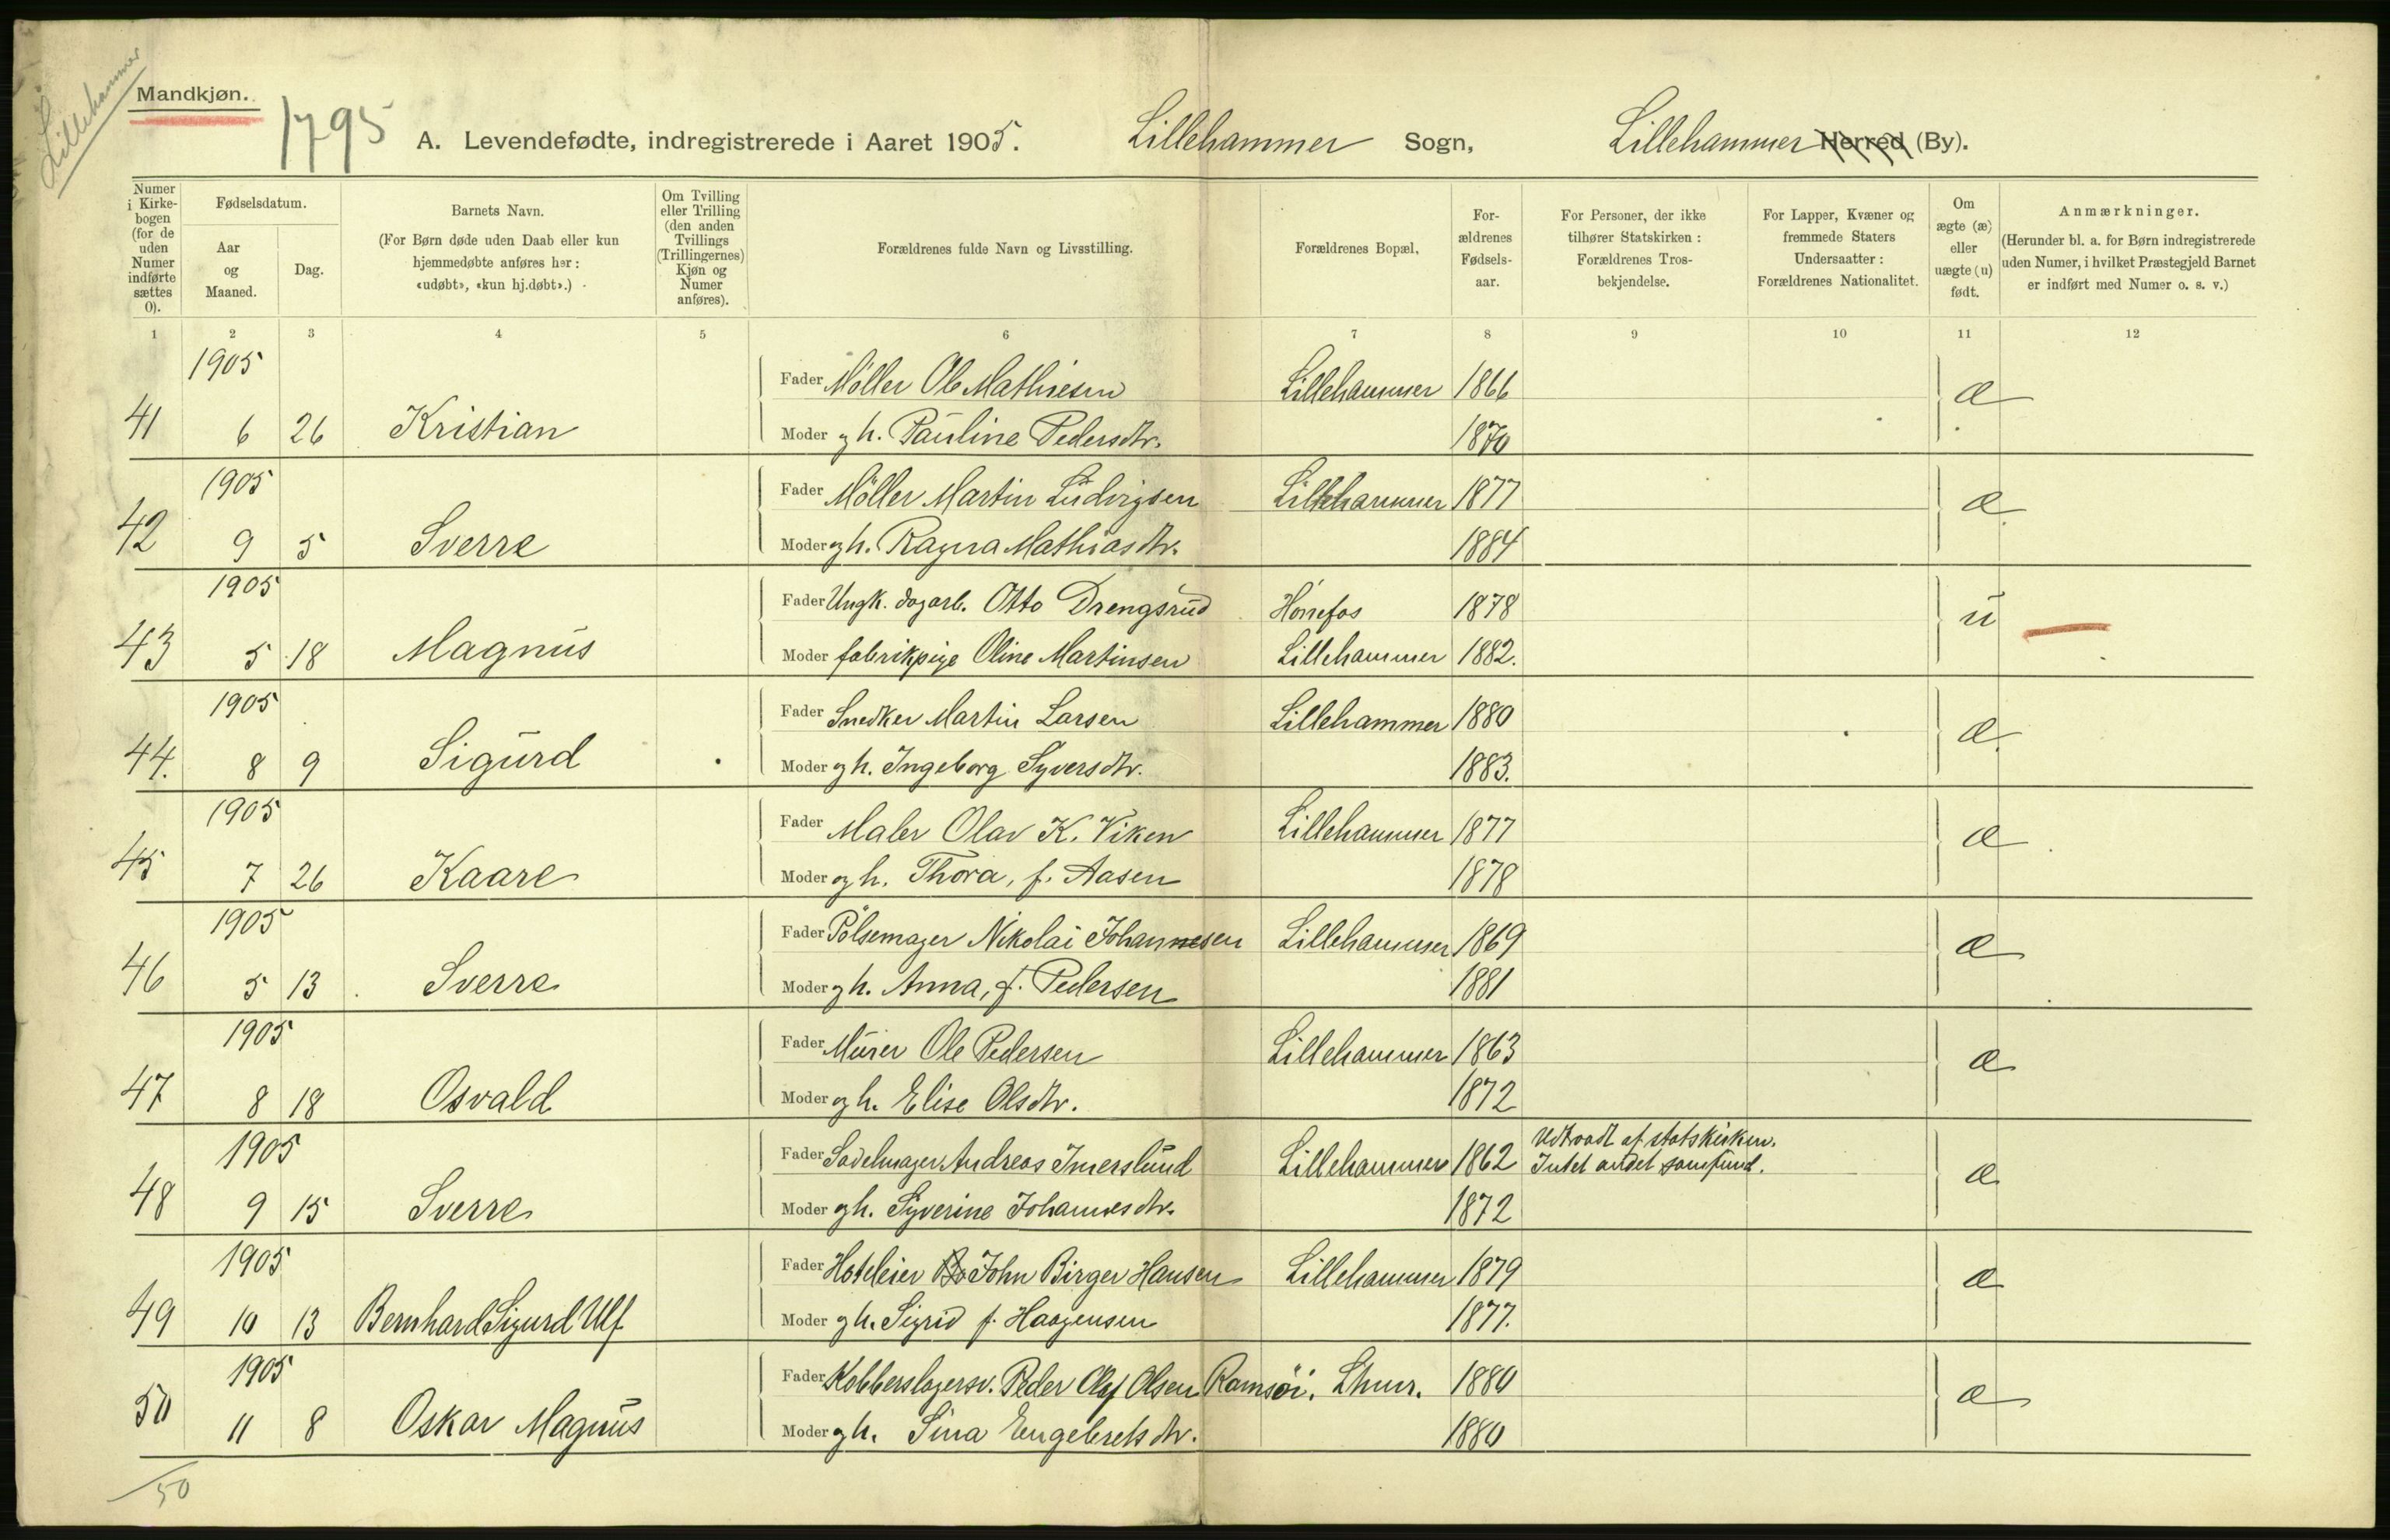 Lillehammer
Mandkjøn.
1795
A. Levendefødte, indregistrerede i Aaret 1905. Lillehammer Sogn, Lillehammer Herred (By).
Numer i Kirkebogen (for de uden Numer indførte sættes 0).
Fødselsdatum.
Aar og Maaned.
Dag.
Barnets Navn.
(For Børn døde uden Daab eller kun hjemmedøbte anføres her: «udøbt», «kun hj.døbt».)
Om Tvilling eller Trilling (den anden Tvillings (Trillingernes) Kjøn og Numer anføres).
Forældrenes fulde Navn og Livsstilling.
Forældrenes Bopæl.
Forældrenes Fødselsaar.
For Personer, der ikke tilhører Statskirken: Forældrenes Trosbekjendelse.
For Lapper, Kvæner og fremmede Staters Undersaatter: Forældrenes Nationalitet.
Om ægte (æ) eller uægte (u) født.
Anmærkninger.
(Herunder bl. a. for Børn indregistrerede uden Numer, i hvilket Præstegjeld Barnet er indført med Numer o. s. v.)
1 2 3 4 5 6 7 8 9 10 11 12
1905
Fader Møller Ole Mathiesen Lillehammer 1866 æ
41 6 26 Kristian Moder og h. Pauline Pedersdtr. 1870
1905
Fader Møller Martin Ludvigsen Lillehammer 1877 æ
42 9 5 Sverre Moder og h. Ragna Mathiasdtr. 1884
1905
Fader Ungk. dagarb. Otto Drengsrud Hønefos 1878 u
43 5 18 Magnus Moder fabrikpige Oline Martinsen Lillehammer 1882.
1905
Fader Snedker Martin Larsen Lillehammer 1880 æ
44. 8 9 Sigurd Moder og h. Ingeborg Syversdtr. 1883.
1905
Fader Maler Olav K. Viken Lillehammer 1877 æ
45 7 26 Kaare Moder og h. Thora, f. Aasen 1878
1905
Fader Pølsemager Nikolai Johannesen Lillehammer 1869 æ
46 5 13 Sverre Moder og h. Anna, f. Pedersen 1881
1905
Fader Murer Ole Pedersen Lillehammer 1863 æ
47 8 18 Osvald Moder og h. Elise Olsdtr. 1872
1905
Fader Sadelmager Andreas Imerslund Lillehammer 1862 Udtraadt af statskirken. Intet andet samfund. æ
48 9 15 Sverre Moder og h. Syverine Johannesdtr. 1872
1905
Fader Hoteleier John Birger Hansen Lillehammer 1879 æ
49 10 13 Bernhard Sigurd Ulf Moder og h. Sigrid f. Haagensen 1877.
1905
Fader Kobberslagersv. Peder Olaf Olsen Ramsøi. Lhmr. 1880 æ
50 11 8 Oskar Magnus Moder og h. Sina Engebretsdtr. 1880
50